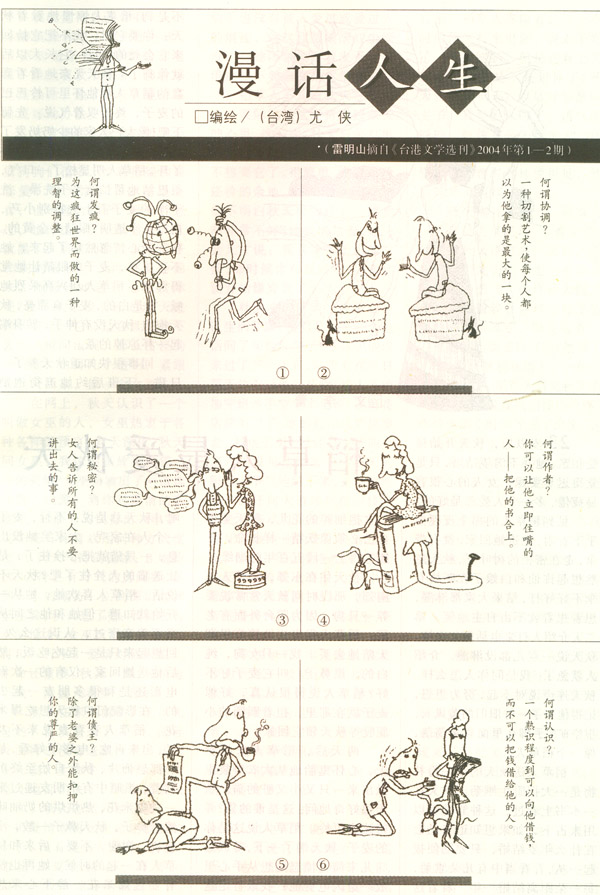 漫话人生
□编绘/(台湾)尤侠
·(雷明山摘自《台港文学选刊》2004年第1—2期)
何谓发疯?
为这疯狂世界而做的一种
理智的调整。
①
何谓协调?
一种切割艺术,使每个人都
以为他拿的是最大的一块。
②
何谓秘密?
女人告诉所有的人不要
讲出去的事。
③
何谓作者?
你可以让他立即住嘴的
人——把他的书合上。
④
何谓债主?
除了老婆之外能扣押
你的尊严的人。
⑤
何谓认识?
一个熟识程度到可以向他借钱,
而不可以把钱借给他的人。
⑥